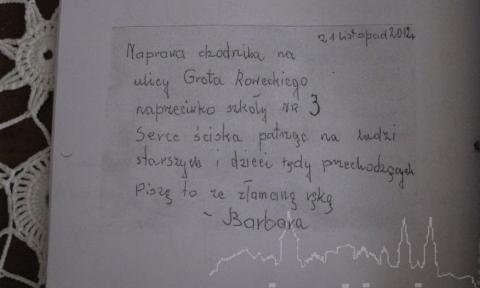 21 listopad 2012
Naprawa chodnika na
ulicy Grota Roweckiego
naprzeciwko szkoły NR 3
Serce ściska patrząc na ludzi
starszych i dzieci tędy przechodzących
Piszę to ze złamaną ręką
~ Barbara